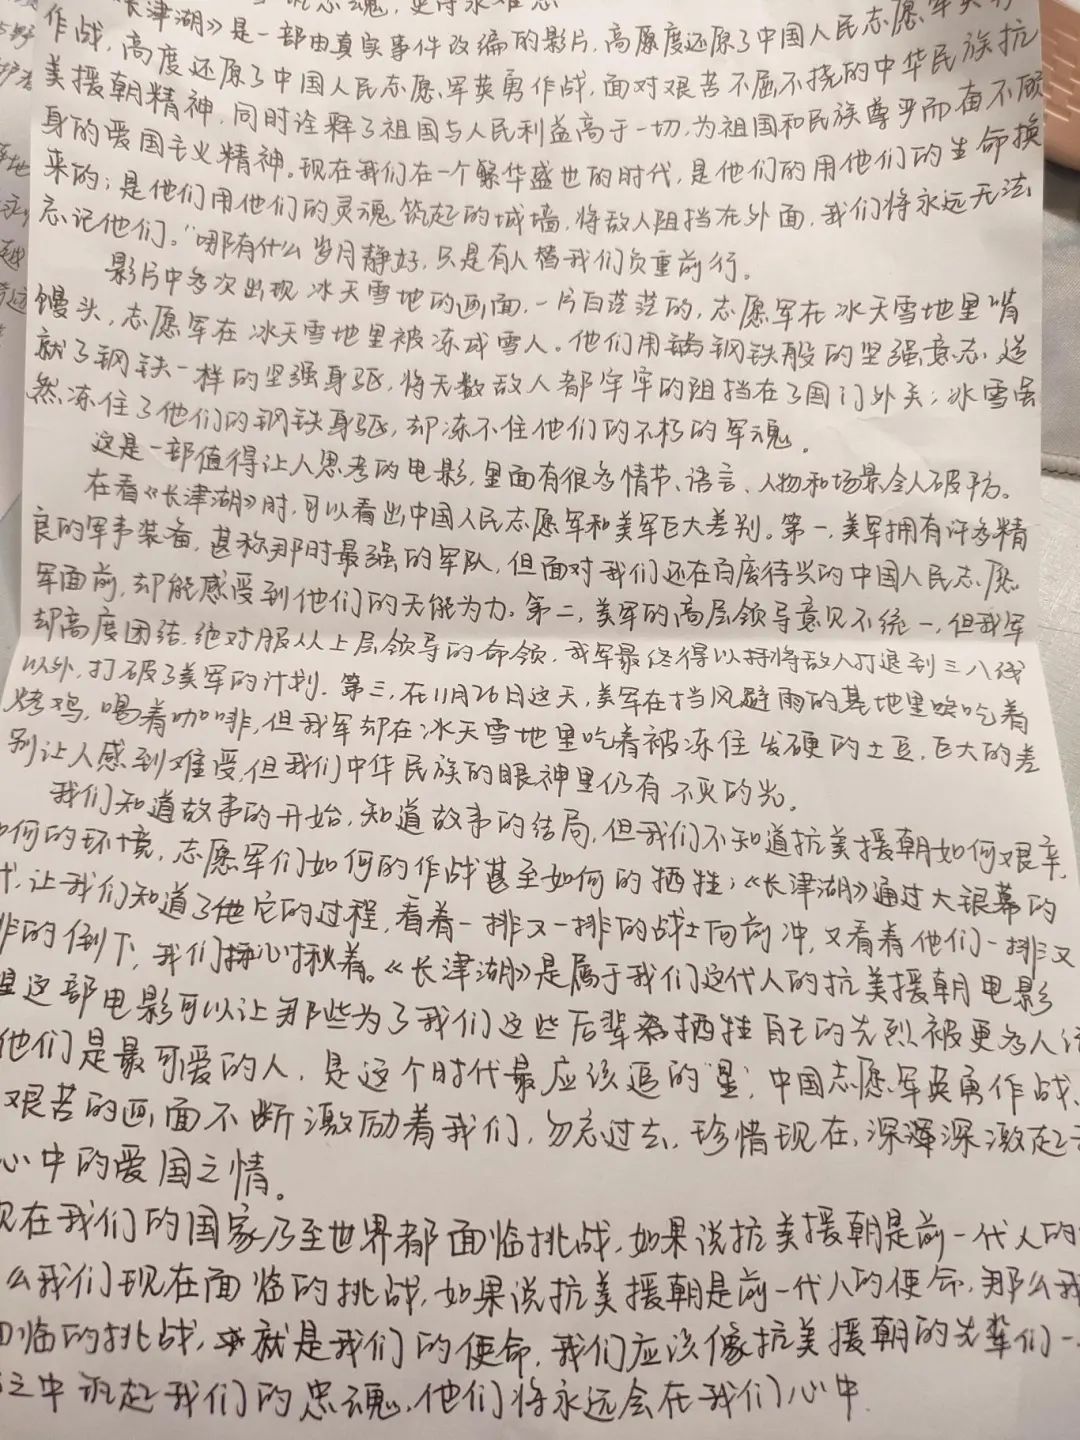 忠魂,
《长津湖》是一部由真实事件改编的影片,高愿度还原了中国人民志愿军英勇
作战,高度还原了中国人民志愿军英勇作战,面对艰苦不屈不挠的中华民族抗
美援朝精神,同时诠释了祖国与人民利益高于一切,为祖国和民族尊严而奋不顾
身的爱国主义精神。现在我们在一个繁华盛世的时代,是他们的用他们的生命换
来的;是他们用他们的灵魂筑起的城墙,将敌人阻挡在外面,我们将永远无法
忘记他们。“哪有什么岁月静好,只是有人替我们负重前行。
影片中多次出现冰天雪地的画面,一片白茫茫的,志愿军在冰天雪地里啃
馒头,志愿军在冰天雪地里被冻成雪人。他们用钢铁般的坚强意志,造
就了钢铁一样的坚强身躯,将无数敌人都牢牢的阻挡在了国门外关;冰雪虽
然冻住了他们的钢铁身躯,却冻不住他们的不朽的军魂。
这是一部值得让人思考的电影,里面有很多情节、语言、人物和场景令人破防。
在看《长津湖》时,可以看出中国人民志愿军和美军巨大差别。第一,美军拥有许多精
良的军事装备,甚称那时最强的军队,但面对我们还在百废待兴的中国人民志愿
军面前,却能感受到他们的无能为力。第二,美军的高层领导意见不统一,但我军
却高度团结,绝对服从上层领导的命领,我军最终得以将敌人打退到三八线
以外,打破了美军的计划。第三,在11月26日这天,美军在挡风避雨的基地里吃着
烤鸡,喝着咖啡,但我军却在冰天雪地里吃着被冻住发硬的土豆,巨大的差
别让人感到难受,但我们中华民族的眼神里仍有不灭的光。
我们知道故事的开始,知道故事的结局,但我们不知道抗美援朝如何艰辛,
何的环境,志愿军们如何的作战甚至如何的牺牲;《长津湖》通过大银幕的
让我们知道了它的过程,看着一排又一排的战士向前冲,又看着他们一排又
的倒下,我们揪心揪着。《长津湖》是属于我们这代人的抗美援朝电影
这部电影可以让那些为了我们这些后辈牺牲自己的先烈被更多人
他们是最可爱的人,是这个时代最应该追的‘星’,中国志愿军英勇作战、
艰苦的画面不断激励着我们,勿忘过去,珍惜现在,深深激起
心中的爱国之情。
现在我们的国家乃至世界都面临挑战,如果说抗美援朝是前一代人的
么我们现在面临的挑战,如果说抗美援朝是前一代人的使命,那么我
面临的挑战,就是我们的使命,我们应该像抗美援朝的先辈们一
之中筑起我们的忠魂,他们将永远会在我们心中.